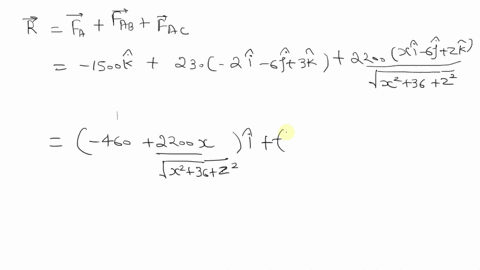 R⃗ = F⃗_A + F⃗_AB + F⃗_AC
= -1500k̂ + 230(-2î-6ĵ+3k̂) + 2200(xî-6ĵ+zk̂)/√(x²+36+z²)
= (-460 + 2200x/√(x²+36+z²))î + (